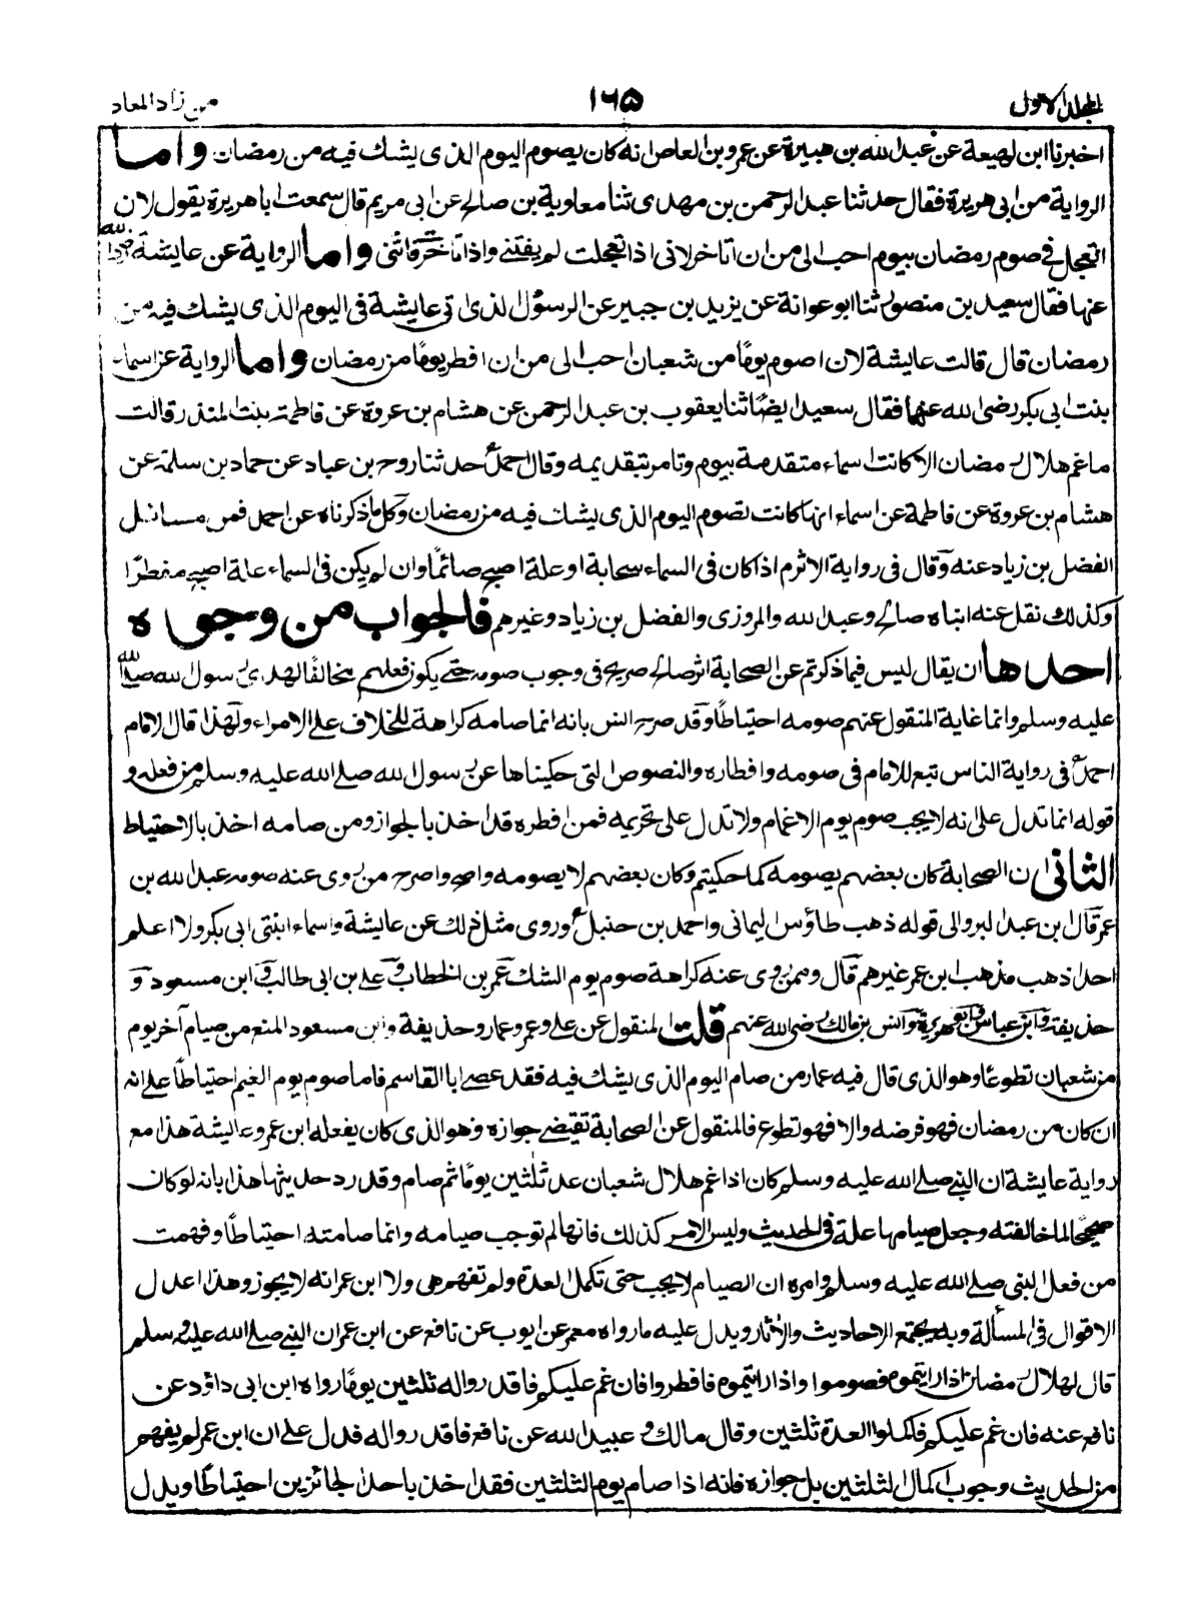 المجلد الاول ١٦٥ من زاد المعاد
اخبرنا ابن لهيعة عن عبد الله بن هبيرة عن عمرو بن العاص انه كان يصوم اليوم الذى يشك فيه من رمضان واما
الرواية من ابى هريرة فقال حدثنا عبد الرحمن بن مهدى ثنا معاوية بن صالح عن ابى مريم قال سمعت ابا هريرة يقول لان
اتعجل فى صوم رمضان بيوم احب الى من ان اتاخر لانى اذا تعجلت لم يفتنى واذا تاخرت فاتنى واما الرواية عن عايشة رضى الله
عنها فقال سعيد بن منصور ثنا ابو عوانة عن يزيد بن جبير عن الرسول الذى اتى عايشة فى اليوم الذى يشك فيه من
رمضان قال قالت عايشة لان اصوم يومًا من شعبان احب الى من ان افطر يومًا من رمضان واما الرواية عن اسماء
بنت ابى بكر رضى الله عنهما فقال سعيد ايضًا ثنا يعقوب بن عبد الرحمن عن هشام بن عروة عن فاطمة بنت المنذر قالت
ما غم هلال رمضان الا كانت اسماء متقدمة بيوم وتامر بتقديمه وقال احمد حدثنا روح بن عباد عن حماد بن سلمة عن
هشام بن عروة عن فاطمة عن اسماء انها كانت تصوم اليوم الذى يشك فيه من رمضان وكل ما ذكرناه عن احمد فمن مسائل
الفضل بن زياد عنه وقال فى رواية الاثرم اذا كان فى السماء سحابة او علة اصبح صائمًا وان لم يكن فى السماء علة اصبح مفطرًا
وكذلك نقل عنه ابناه صالح وعبد الله والمروزى والفضل بن زياد وغيرهم فالجواب من وجوه
احدها ان يقال ليس فيما ذكرتم عن الصحابة اثر صالح صريح فى وجوب صومه حتى يكون فعلهم مخالفًا لهدى رسول الله صلى الله
عليه وسلم وانما غاية المنقول عنهم صومه احتياطًا وقد صرح انس بانه انما صامه كراهة للخلاف على الامراء ولهذا قال الامام
احمد فى رواية الناس تبع للامام فى صومه وافطاره والنصوص التى حكيناها عن رسول الله صلى الله عليه وسلم من فعله و
قوله انما تدل على انه لا يجب صوم يوم الاغمام ولا تدل على تحريمه فمن افطره قد اخذ بالجواز ومن صامه اخذ بالاحتياط
الثانى ان الصحابة كان بعضهم يصومه كما حكيتم وكان بعضهم لا يصومه واصح واصرح من روى عنه صومه عبد الله بن
عمر قال ابن عبد البر والى قوله ذهب طاؤس اليمانى واحمد بن حنبل وروى مثل ذلك عن عايشة واسماء ابنتى ابى بكر ولا اعلم
احدا ذهب مذهب ابن عمر غيرهم قال وممن روى عنه كراهة صوم يوم الشك عمر بن الخطاب وعلى بن ابى طالب وابن مسعود و
حذيفة وابن عباس وابو هريرة وانس بن مالك رضى الله عنهم قلت المنقول عن على وعمر وعمار وحذيفة وابن مسعود المنع من صيام آخر يوم
من شعبان تطوعًا وهو الذى قال فيه عمار من صام اليوم الذى يشك فيه فقد عصى ابا القاسم فاما صوم يوم الغيم احتياطًا على انه
ان كان من رمضان فهو فرضه والا فهو تطوع فالمنقول عن الصحابة تقتضى جوازه وهو الذى كان يفعله ابن عمر وعايشة هذا مع
رواية عايشة ان النبى صلى الله عليه وسلم كان اذا غم هلال شعبان عد ثلثين يومًا ثم صام وقد رد حديثها هذا بانه لو كان
صحيحًا لما خالفته وجعل صيامها علة فى الحديث وليس الامر كذلك فانها لم توجب صيامه وانما صامته احتياطًا وفهمت
من فعل النبى صلى الله عليه وسلم وامره ان الصيام لا يجب حتى تكمل العدة ولم تفهم هى ولا ابن عمر انه لا يجوز وهذا اعدل
الاقوال فى المسألة وبه يجتمع الاحاديث والآثار ويدل عليه ما رواه معمر عن ايوب عن نافع عن ابن عمر ان النبى صلى الله عليه وسلم
قال لهلال رمضان اذا رايتموه فصوموا واذا رايتموه فافطروا فان غم عليكم فاقدروا له ثلثين يومًا رواه ابن ابى داؤد عن
نافع عنه فان غم عليكم فاكملوا العدة ثلثين وقال مالك وعبيد الله عن نافع فاقدروا له فدل على ان ابن عمر لم يفهم
من الحديث وجوب اكمال الثلثين بل جوازه فانه اذا صام يوم الثلثين فقد اخذ باحد الجائزين احتياطًا ويدل